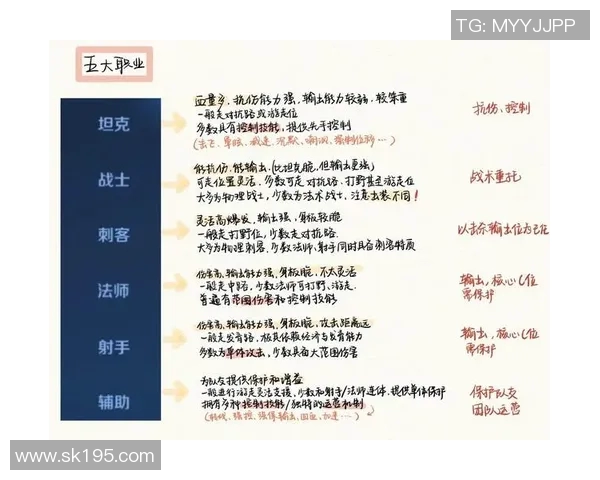 TG: MYYJJPP
五大职业
坦克
血量多、抗伤能力强、输出能力较弱、较笨重
一般走对抗路或游走位
多数具有控制技能，提供先手控制
(击飞、晕眩、减速、沉默、嘲讽、强制位移…)
抗伤、控制
战士
能抗伤、能输出、(比坦克脆，但输出更强)
可走位置灵活，多数可走对抗路、打野甚至游走位
大多为物理战士，少数为法术战士，注意出装不同！
战术重托
刺客
灵活高爆发，输出强，身板较脆
一般走打野位，少数走对抗路.
大多为物理刺客，少数法师、射手同时具备刺客特质
以击杀输出位为己任
法师
伤害高、输出能力强、身板脆、不太灵活
一般走中路，少数法师可打野、游走.
普遍有范围伤害和控制技能
输出，核心C位
需保护
射手
伤害高、输出能力强、身板脆、攻击距离远
一般走发育路，极具依赖经济与发育能力
多数为单体攻击，少数具备大范围伤害
输出，核心C位
需保护
辅助
为队友提供保护和增益
一般进行游走灵活支援，少数和射手/法师连体，提供单体保护
拥有多种控制技能/独特的运营机制
强控、强保输出、回血、加速…)
保护队友
团队运营
www.sk195.com